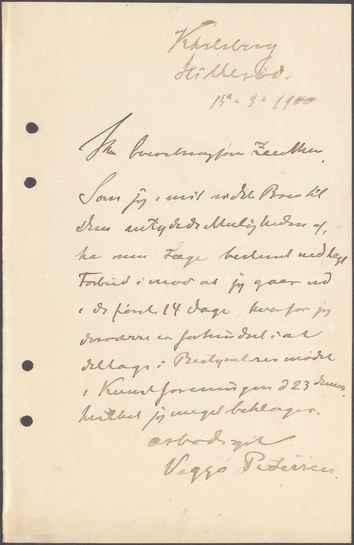 Karlsberg
Hillerød.
15' - 9 - 1900
Hr.
Som jeg i mit sidste Brev til
Dem antydede Muligheden af,
har min Læge bestemt nedlagt
Forbud imod at jeg gaar ud
i de første 14 Dage, hvorfor jeg
desværre er forhindret i at
deltage i Bestyrelsesmødet
i Kunstforeningen d 23 dennes,
hvilket jeg meget beklager.
ærbødigst
Viggo Pedersen.